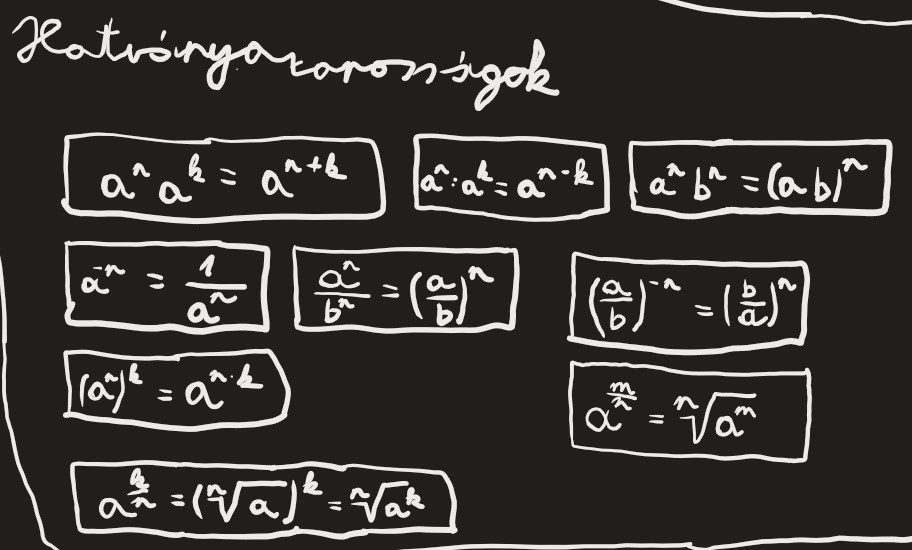 Hatványazonosságok
aⁿ aᵏ = aⁿ⁺ᵏ
aⁿ : aᵏ = aⁿ⁻ᵏ
aⁿ bⁿ = (a b)ⁿ
a⁻ⁿ = 1/aⁿ
aⁿ/bⁿ = (a/b)ⁿ
(a/b)⁻ⁿ = (b/a)ⁿ
(aⁿ)ᵏ = a^(n·k)
a^(m/n) = ⁿ√(aᵐ)
a^(k/n) = (ⁿ√a)ᵏ = ⁿ√(aᵏ)